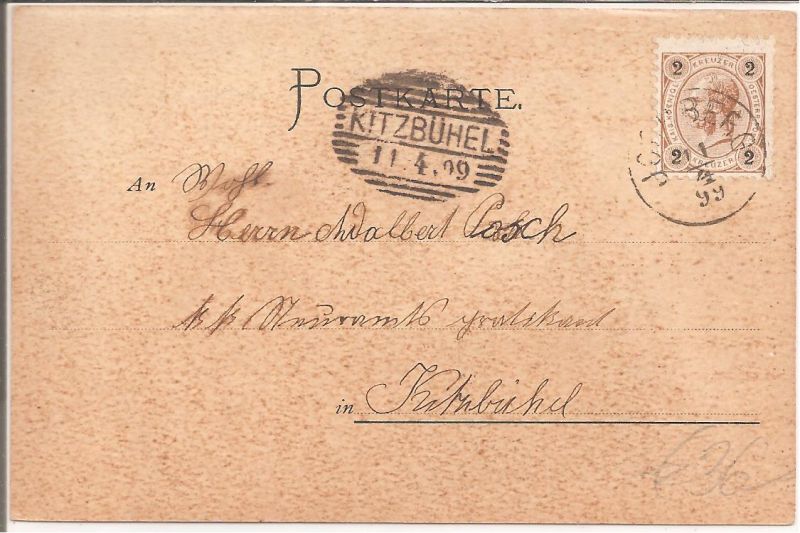 POSTKARTE.
KITZBÜHEL
11.4.99
2 KREUZER 2
2 KREUZER 2
99
An Wohl.
Herrn Adalbert Posch
k k Steueramts
in Kitzbühel
636